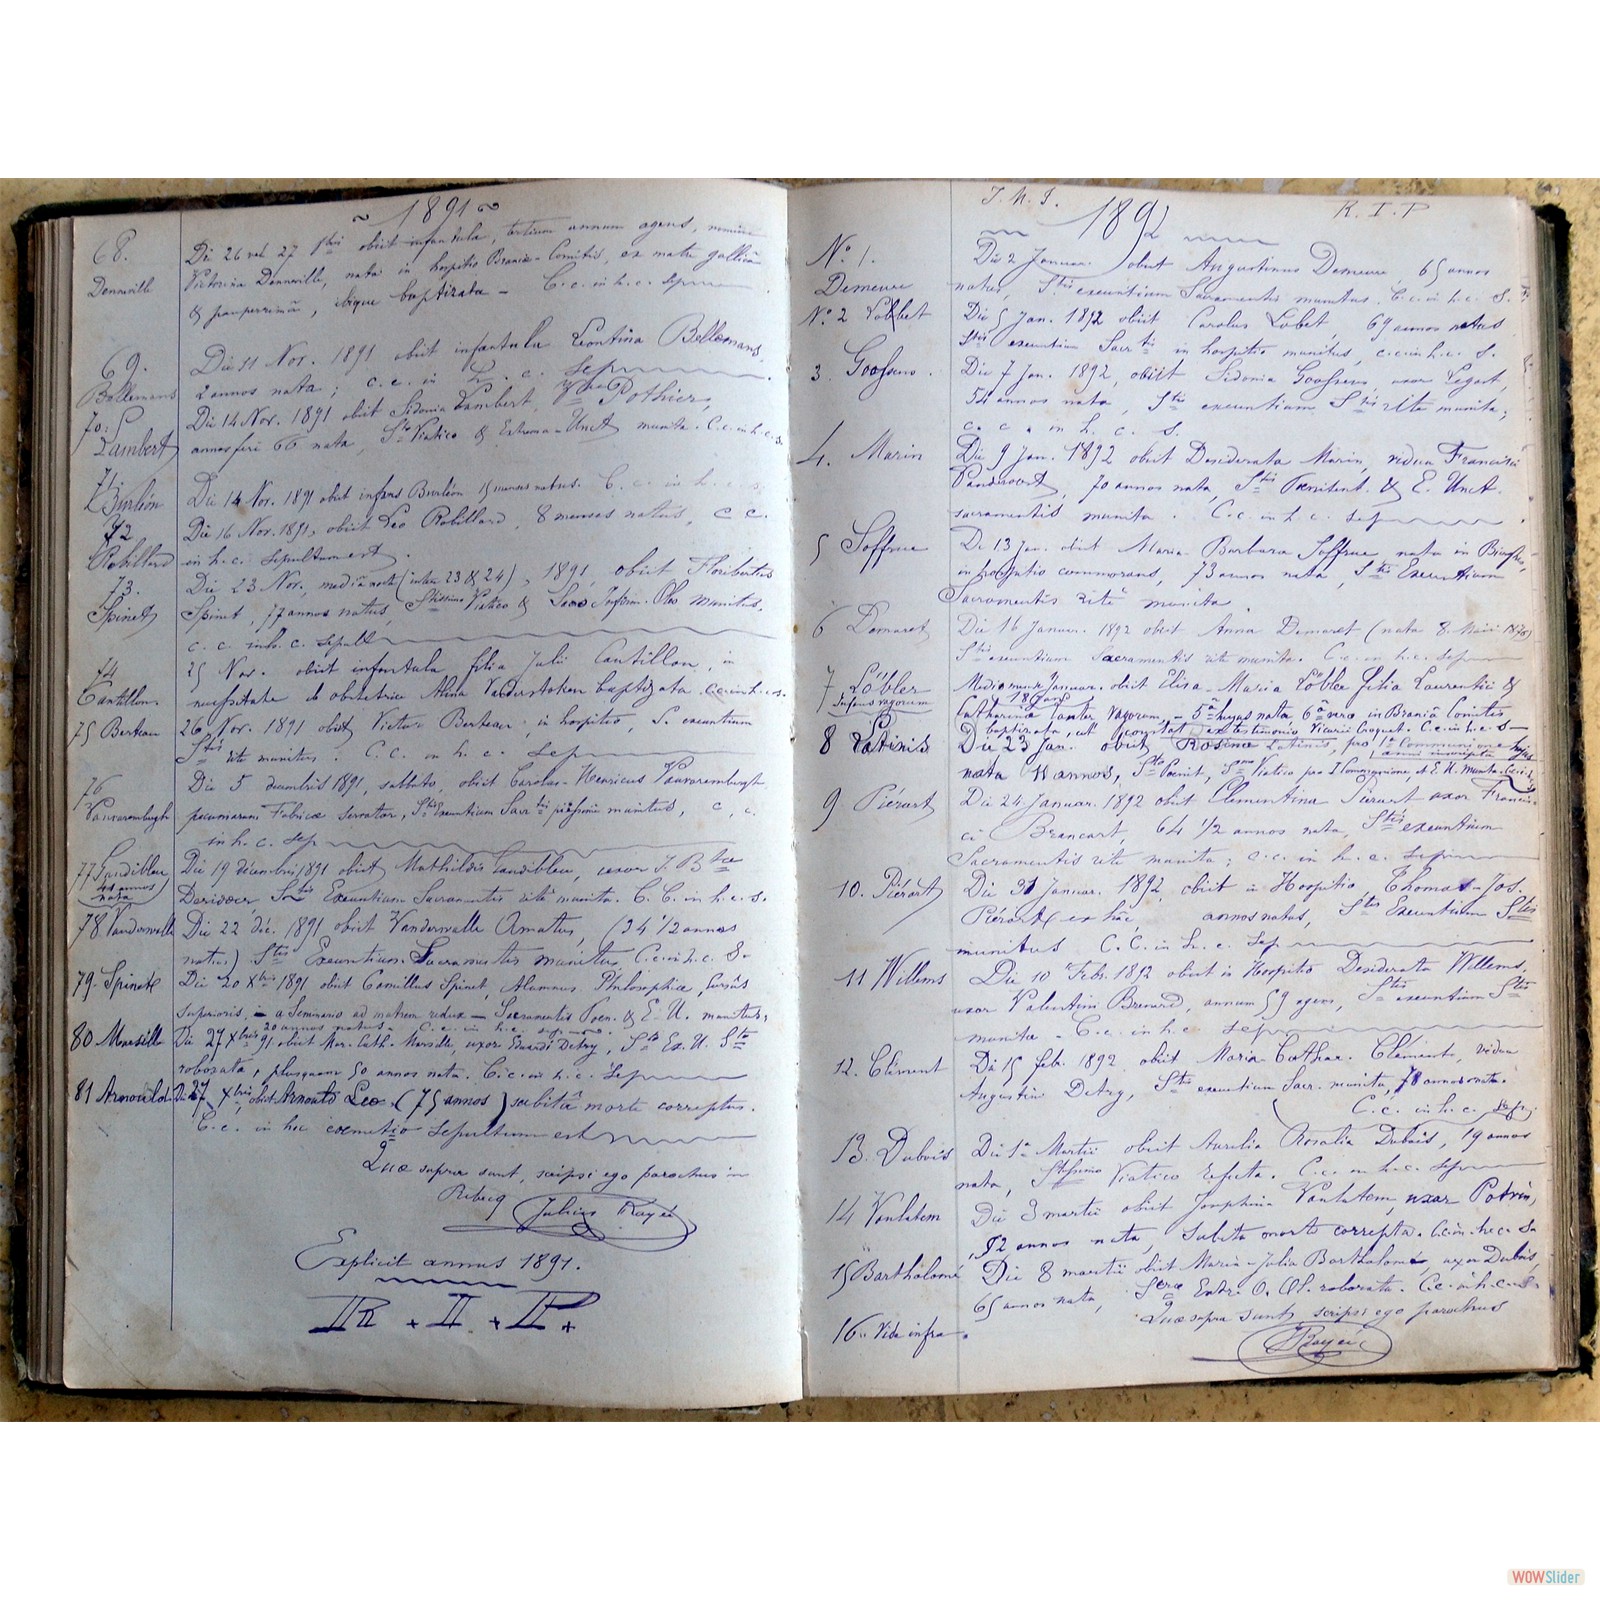 ~ 1891 ~
68.
Die 26 vel 27 obiit infantula, tertium annum agens, nomine
Donneville
Victorina Donneville, nata in hospitio Braniæ-Comitis, ex matre gallicâ
& pauperrimâ, ibique baptizata - C. c. in h. c. sep
69.
Bellemans
Die 11 Nov. 1891 obiit infantula Leontina Bellemans,
2 annos nata; c. c. in h. c. sep
70.
Lambert
Die 14 Nov. 1891 obiit Sidonia Lambert, Pothier,
annos feri 66 nata, Sto Viatico & Extrema-Unct munita. C. c. in h. c. s.
71.
Burlion
Die 14 Nov. 1891 obiit infans Burlion 15 menses natus. C. c. in h. c. s.
72
Robillard
Die 16 Nov. 1891, obiit Leo Robillard, 8 menses natus, c c.
in h. c. sepultum est.
73.
Spinet
Die 23 Nov. mediâ nocte (inter 23 & 24), 1891, obiit Floribertus
Spinet, 77 annos natus, Stissimo Viatico & Infirm. Oleo munitus.
c. c. in h. c. sepult
74
Cantillon.
25 Nov. obiit infantula filia Julii Cantillon, in
necessitate ab obstetrice Alina Vanderstoken baptizata. c. c. in h. c. s.
75 Berteau
26 Nov. 1891 obiit Victor Berteau, in hospitio, S. exeuntium
Stis rite munitus. C. C. in h. c. sep
76
Vauvaremburgh
Die 5 decembris 1891, sabbato, obiit Carolus-Henricus Vauvaremburgh
pecuniarum Fabricæ servator, Stis Exeuntium Sacrtis piissime munitus, c. c.
in h. c. sep
77 Gaudibleu
44 annos
nata
Die 19 décembris 1891 obiit Mathildis Gaudibleu, uxor J. Bta
Stis Exeuntium Sacramentis ritè munita. C. C. in h. c. s.
78 Vanderwalle
Die 22 déc. 1891 obiit Vanderwalle Amatus, (34 1/2 annos
natus) Stis Exeuntium Sacramentis munitus, C. c. in h. c. S.
79. Spinet
Die 20 Xbris 1891 obiit Camillus Spinet, Alumnus Philosophiæ, Cursûs
Superioris, - a Seminario ad matrem redux - Sacramentis Poen. & E. U. munitus,
20 annos natus - C. c. in h. c.
80 Marsille
Die 27 Xbris 91 obiit Mar. Cath. Marsille, uxor Eduardi Detry, Stis Ex. U. Stis
roborata, plusquam 50 annos nata. C. c. in h. c. Sep
81 Arnould
Die 27 Xbris, obiit Arnould Leo (75 annos) subitâ morte correptus.
C. c. in hoc coemeterio sepultum est
Quæ supra sunt, scripsi ego parochus in
Rebecq Julius Rayée
Explicit annus 1891.
R + I + P +
J. M. J. 1892 R. I. P
N° 1.
Demeure
Die 2 Januar. obiit Augustinus Demeure 65 annos
natus, Stis exeuntium Sacramentis munitus. C. c. in h. c. S.
N° 2 Lobbet
Die 5 Jan. 1892 obiit Carolus Lobet, 69 annos natus
Stis exeuntium Sacrtis in hospitio munitus, c. c. in h. c. S.
3. Goossens.
Die 7 Jan. 1892, obiit Sidonia Goossens, uxor Legat,
54 annos nata, Stis exeuntium Stis rite munita;
c. c. in h. c. S.
4. Marin
Die 9 Jan. 1892 obiit Desiderata Marin, vidua Francisci
70 annos nata, Stis Pœnitent. & E. Unct.
sacramentis munita. C. c. in h. c. Sep
5 Joffrue
Die 13 Jan. obiit Maria Barbara Joffrue, nata in
in hospitio commorans, 73 annos nata, Stis Exeuntium
Sacramentis ritè munita.
6 Demaret
Die 16 Januar. 1892 obiit Anna Demaret (nata 8
Stis exeuntium Sacramentis rite munita. C. c. in h. c. Sep
7 Löbler
Infans vagorum
Januar. obiit Elisa-Maria Löbler filia Laurentii &
Catharinæ vagorum, 5â hujus nata, 6â vero in Braniâ Comitis
baptizata, ut constat ex testimonio Vicarii Goquet. C. c. in h. c. S
8 Latinis
Die 23 Jan. obiit Rosina Latinis, pro 1a Communione hujus
anni inscripta
nata 11 annos, Sto Poenit, Smo Viatico pro I Communione, et E. U. munita.
9. Piérart
Die 24 Januar. 1892 obiit Clementina Pierart uxor Francis-
ci Brancart, 64 1/2 annos nata, Stis exeuntium
Sacramentis rite munita; c. c. in h. c. Sep
10. Piérart
Die 31 Januar. 1892 obiit in Hospitio, Thomas-Jos.
Piérart ex hâc annos natus, Stis Exeuntium Stis
munitus C. C. in h. c. Sep
11 Willems
Die 10 Febr. 1892 obiit in Hospitio Desiderata Willems,
uxor Valentini annum 59 agens, Stis exeuntium Stis
munita - C. c. in h. c. Sep
12. Clément
Die 15 febr. 1892 obiit Maria-Cathar. Clément, vidua
Augustini Detry, Stis exeuntium Sacr. munita, 78 annos nata.
C. c. in h. c. Sep.
13. Dubois
Die 1a Martii obiit Aurelia Rosalia Dubois, 19 annos
nata, Stissimo Viatico refecta. C. c. in h. c. Sep
14 Vanlatem
Die 3 martii obiit Josephina Vanlatem, uxor Potvin,
52 annos nata, Subita morte correpta. C. c. in h. c. S
15 Bartholomé
Die 8 martii obiit Maria-Julia Bartholomé, uxor Dubois,
65 annos nata, roborata. C. c. in h. c. S.
Quæ supra sunt, scripsi ego parochus
16. Vide infra.
J Rayée
WOWSlider